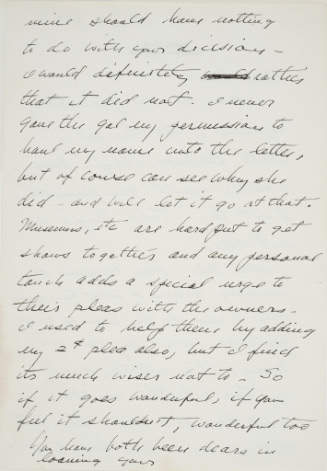 mine should have nothing
to do with your decision -
I would definitely rather
that it did not. I never
gave the gal my permission to
haul my name into the letter,
but of course can see why she
did - and will let it go at that.
Museums, etc are hard put to get
shows together and any personal
touch adds a special urge to
their pleas with the owners -
I used to help them by adding
my 2¢ plea also, but I find
its much wiser not to - So
if it goes wonderful, if you
feel it shouldn't, wonderful too
You have both been dears in
loaning your